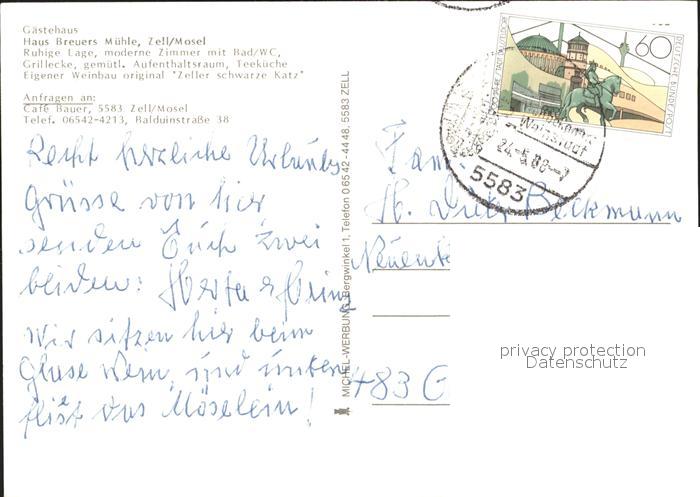 Gästehaus
Haus Breuers Mühle, Zell/Mosel
Ruhige Lage, moderne Zimmer mit Bad/WC,
Grillecke, gemütl. Aufenthaltsraum, Teeküche
Eigener Weinbau original "Zeller schwarze Katz"
Anfragen an:
Café Bauer, 5583 Zell/Mosel
Telef. 06542-4213, Balduinstraße 38
Recht herzliche Urlaubs
Grüsse von hier
senden Euch zwei
beiden: Herta & Heinz
Wir sitzen hier beim
Glase Wein, und unten
fließt das Möselein!
MICHEL-WERBUNG, Bergwinkel 1, Telefon 06542-4448, 5583 ZELL
60
DEUTSCHE BUNDESPOST
Weinstadt
24.-5.88-
5583
Fam.
H. Beckmann
483 G
privacy protection
Datenschutz